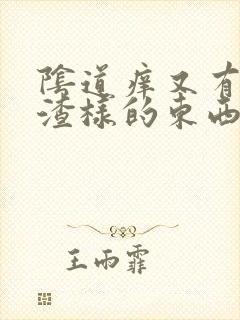 陰道痒又有
渣樣的東西
王雨霏